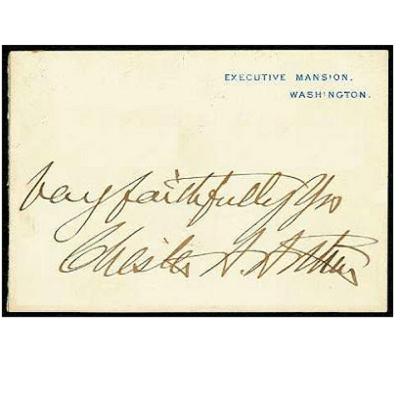 EXECUTIVE MANSION,
WASHINGTON.
Very faithfully Yrs
Chester A. Arthur